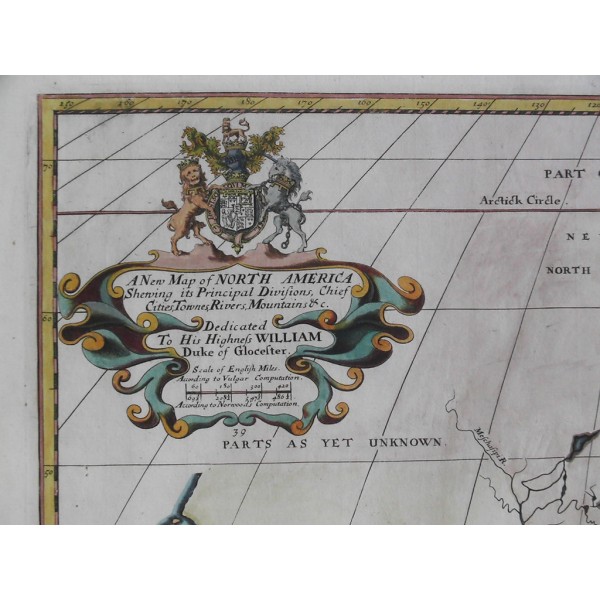 150 160 170 180 170 160 150 140 130 120
70
PART
Arctick Circle.
NE
NORTH
A New Map of NORTH AMERICA
Shewing its Principal Divisions, Chief
Cities, Townes, Rivers, Mountains &c.
Dedicated
To His Highness WILLIAM
Duke of Glocester.
60
Scale of English Miles.
According to Vulgar Computation.
According to Norwood's Computation.
39
PARTS AS YET UNKNOWN.
50